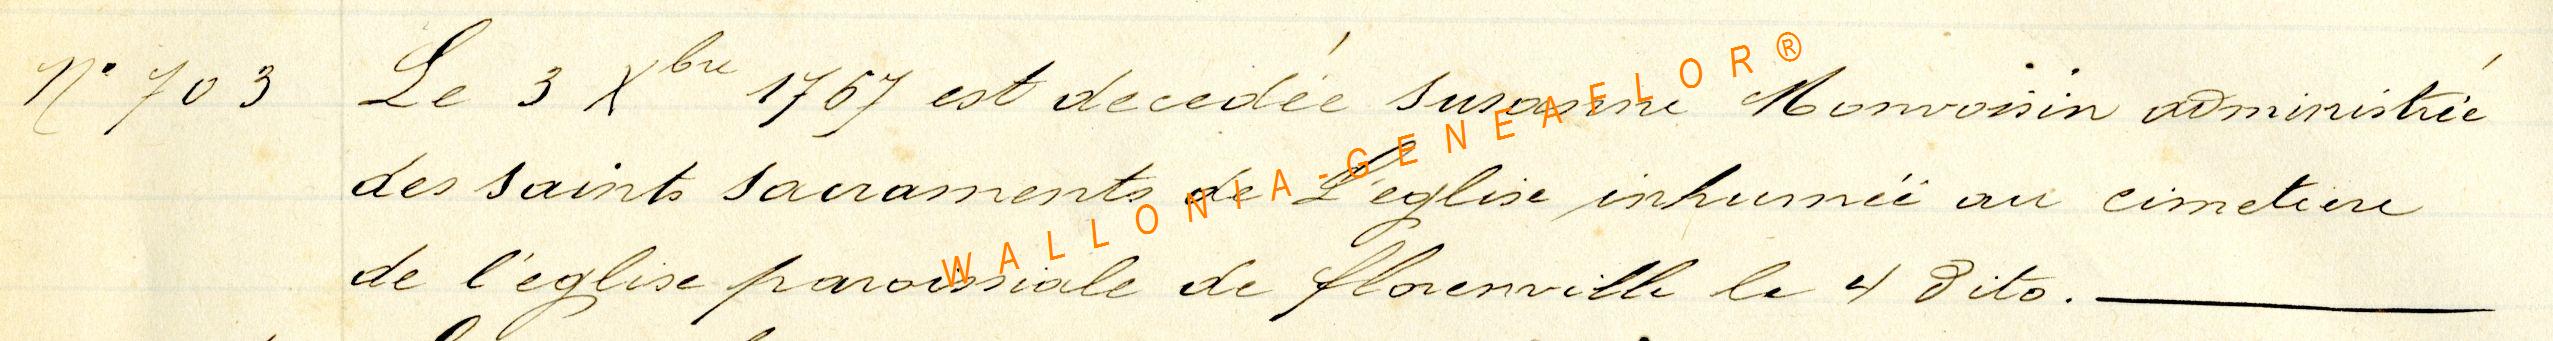 N° 703 Le 3 Xbre 1767 est decedée susanne Monvoisin administrée
des saints sacraments de L'eglise inhumée au cimetiere
de l'eglise paroissiale de florenville le 4 dito.
WALLONIA-GENEAFLOR®